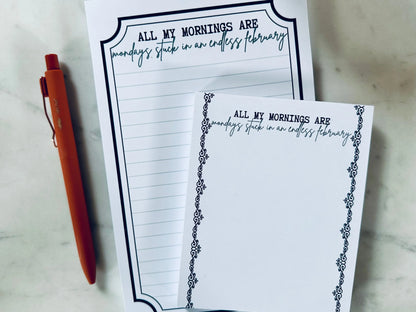 ALL MY MORNINGS ARE
mondays, stuck in an endless february
ALL MY MORNINGS ARE
mondays stuck in an endless february